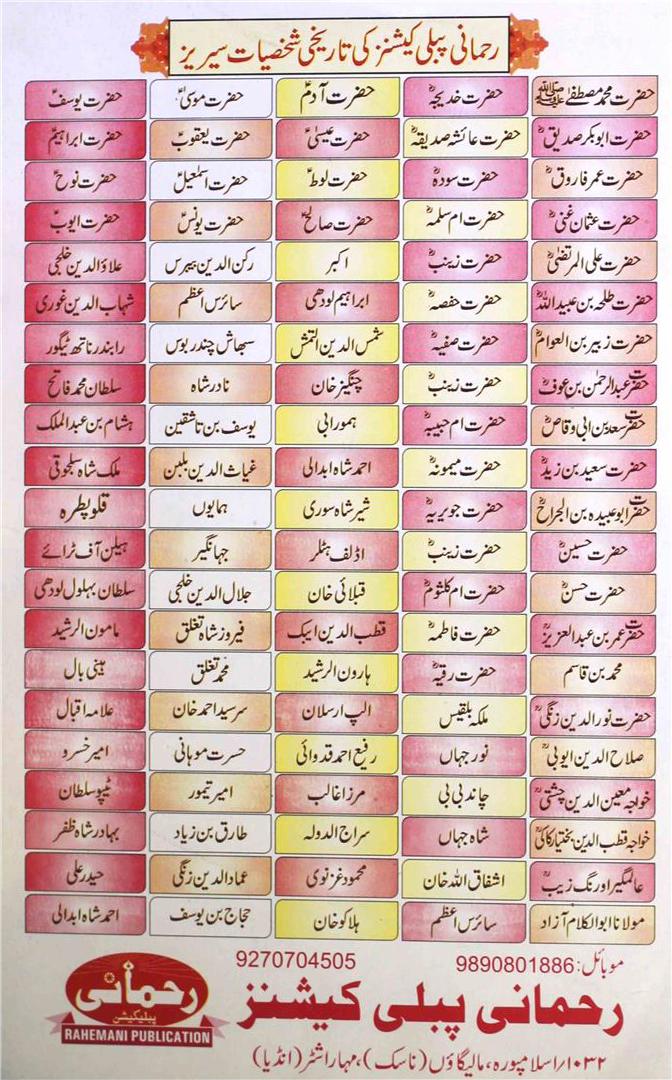 رحمانی پبلی کیشنز کی تاریخی شخصیات سیریز
حضرت محمد مصطفےٰ ﷺ حضرت خدیجہؓ حضرت آدمؑ حضرت موسیٰؑ حضرت یوسفؑ
حضرت ابوبکر صدیقؓ حضرت عائشہ صدیقہؓ حضرت عیسیٰؑ حضرت یعقوبؑ حضرت ابراہیمؑ
حضرت عمر فاروقؓ حضرت سودہؓ حضرت لوطؑ حضرت اسمٰعیلؑ حضرت نوحؑ
حضرت عثمان غنیؓ حضرت ام سلمہؓ حضرت صالحؑ حضرت یونسؑ حضرت ایوبؑ
حضرت علی المرتضیٰؓ حضرت زینبؓ اکبر رکن الدین بیبرس علاؤ الدین خلجی
حضرت طلحہ بن عبید اللہؓ حضرت حفصہؓ ابراہیم لودھی سائرس اعظم شہاب الدین غوری
حضرت زبیر بن العوامؓ حضرت صفیہؓ شمس الدین التمش سبھاش چندر بوس رابندر ناتھ ٹیگور
حضرت عبدالرحمٰن بن عوفؓ حضرت زینبؓ چنگیز خان نادر شاہ سلطان محمد فاتح
حضرت سعد بن ابی وقاصؓ حضرت ام حبیبہؓ ہمورابی یوسف بن تاشقین ہشام بن عبد الملک
حضرت سعید بن زیدؓ حضرت میمونہؓ احمد شاہ ابدالی غیاث الدین بلبن ملک شاہ سلجوقی
حضرت ابو عبیدہ بن الجراحؓ حضرت جویریہؓ شیر شاہ سوری ہمایوں قلوپطرہ
حضرت حسینؓ حضرت زینبؓ اڈلف ہٹلر جہانگیر ہیلن آف ٹرائے
حضرت حسنؓ حضرت ام کلثومؓ قبلائی خان جلال الدین خلجی سلطان بہلول لودھی
حضرت عمر بن عبدالعزیزؒ حضرت فاطمہؓ قطب الدین ایبک فیروز شاہ تغلق مامون الرشید
محمد بن قاسم حضرت رقیہؓ ہارون الرشید محمد تغلق ہینی بال
حضرت نور الدین زنگیؒ ملکہ بلقیس الپ ارسلان سرسید احمد خان علامہ اقبال
صلاح الدین ایوبیؒ نور جہاں رفیع احمد قدوائی حسرت موہانی امیر خسرو
خواجہ معین الدین چشتیؒ چاند بی بی مرزا غالب امیر تیمور ٹیپو سلطان
خواجہ قطب الدین بختیار کاکیؒ شاہ جہاں سراج الدولہ طارق بن زیاد بہادر شاہ ظفر
عالمگیر اورنگ زیبؒ اشفاق اللہ خان محمود غزنوی عماد الدین زنگی حیدر علی
مولانا ابو الکلام آزاد سائرس اعظم ہلاکو خان حجاج بن یوسف احمد شاہ ابدالی
موبائل: 9890801886 9270704505
رحمانی پبلی کیشنز
رحمانی
پبلیکیشن
RAHEMANI PUBLICATION
۱۰۳۲/اسلامپورہ، مالیگاؤں (ناسک)، مہاراشٹر (انڈیا)